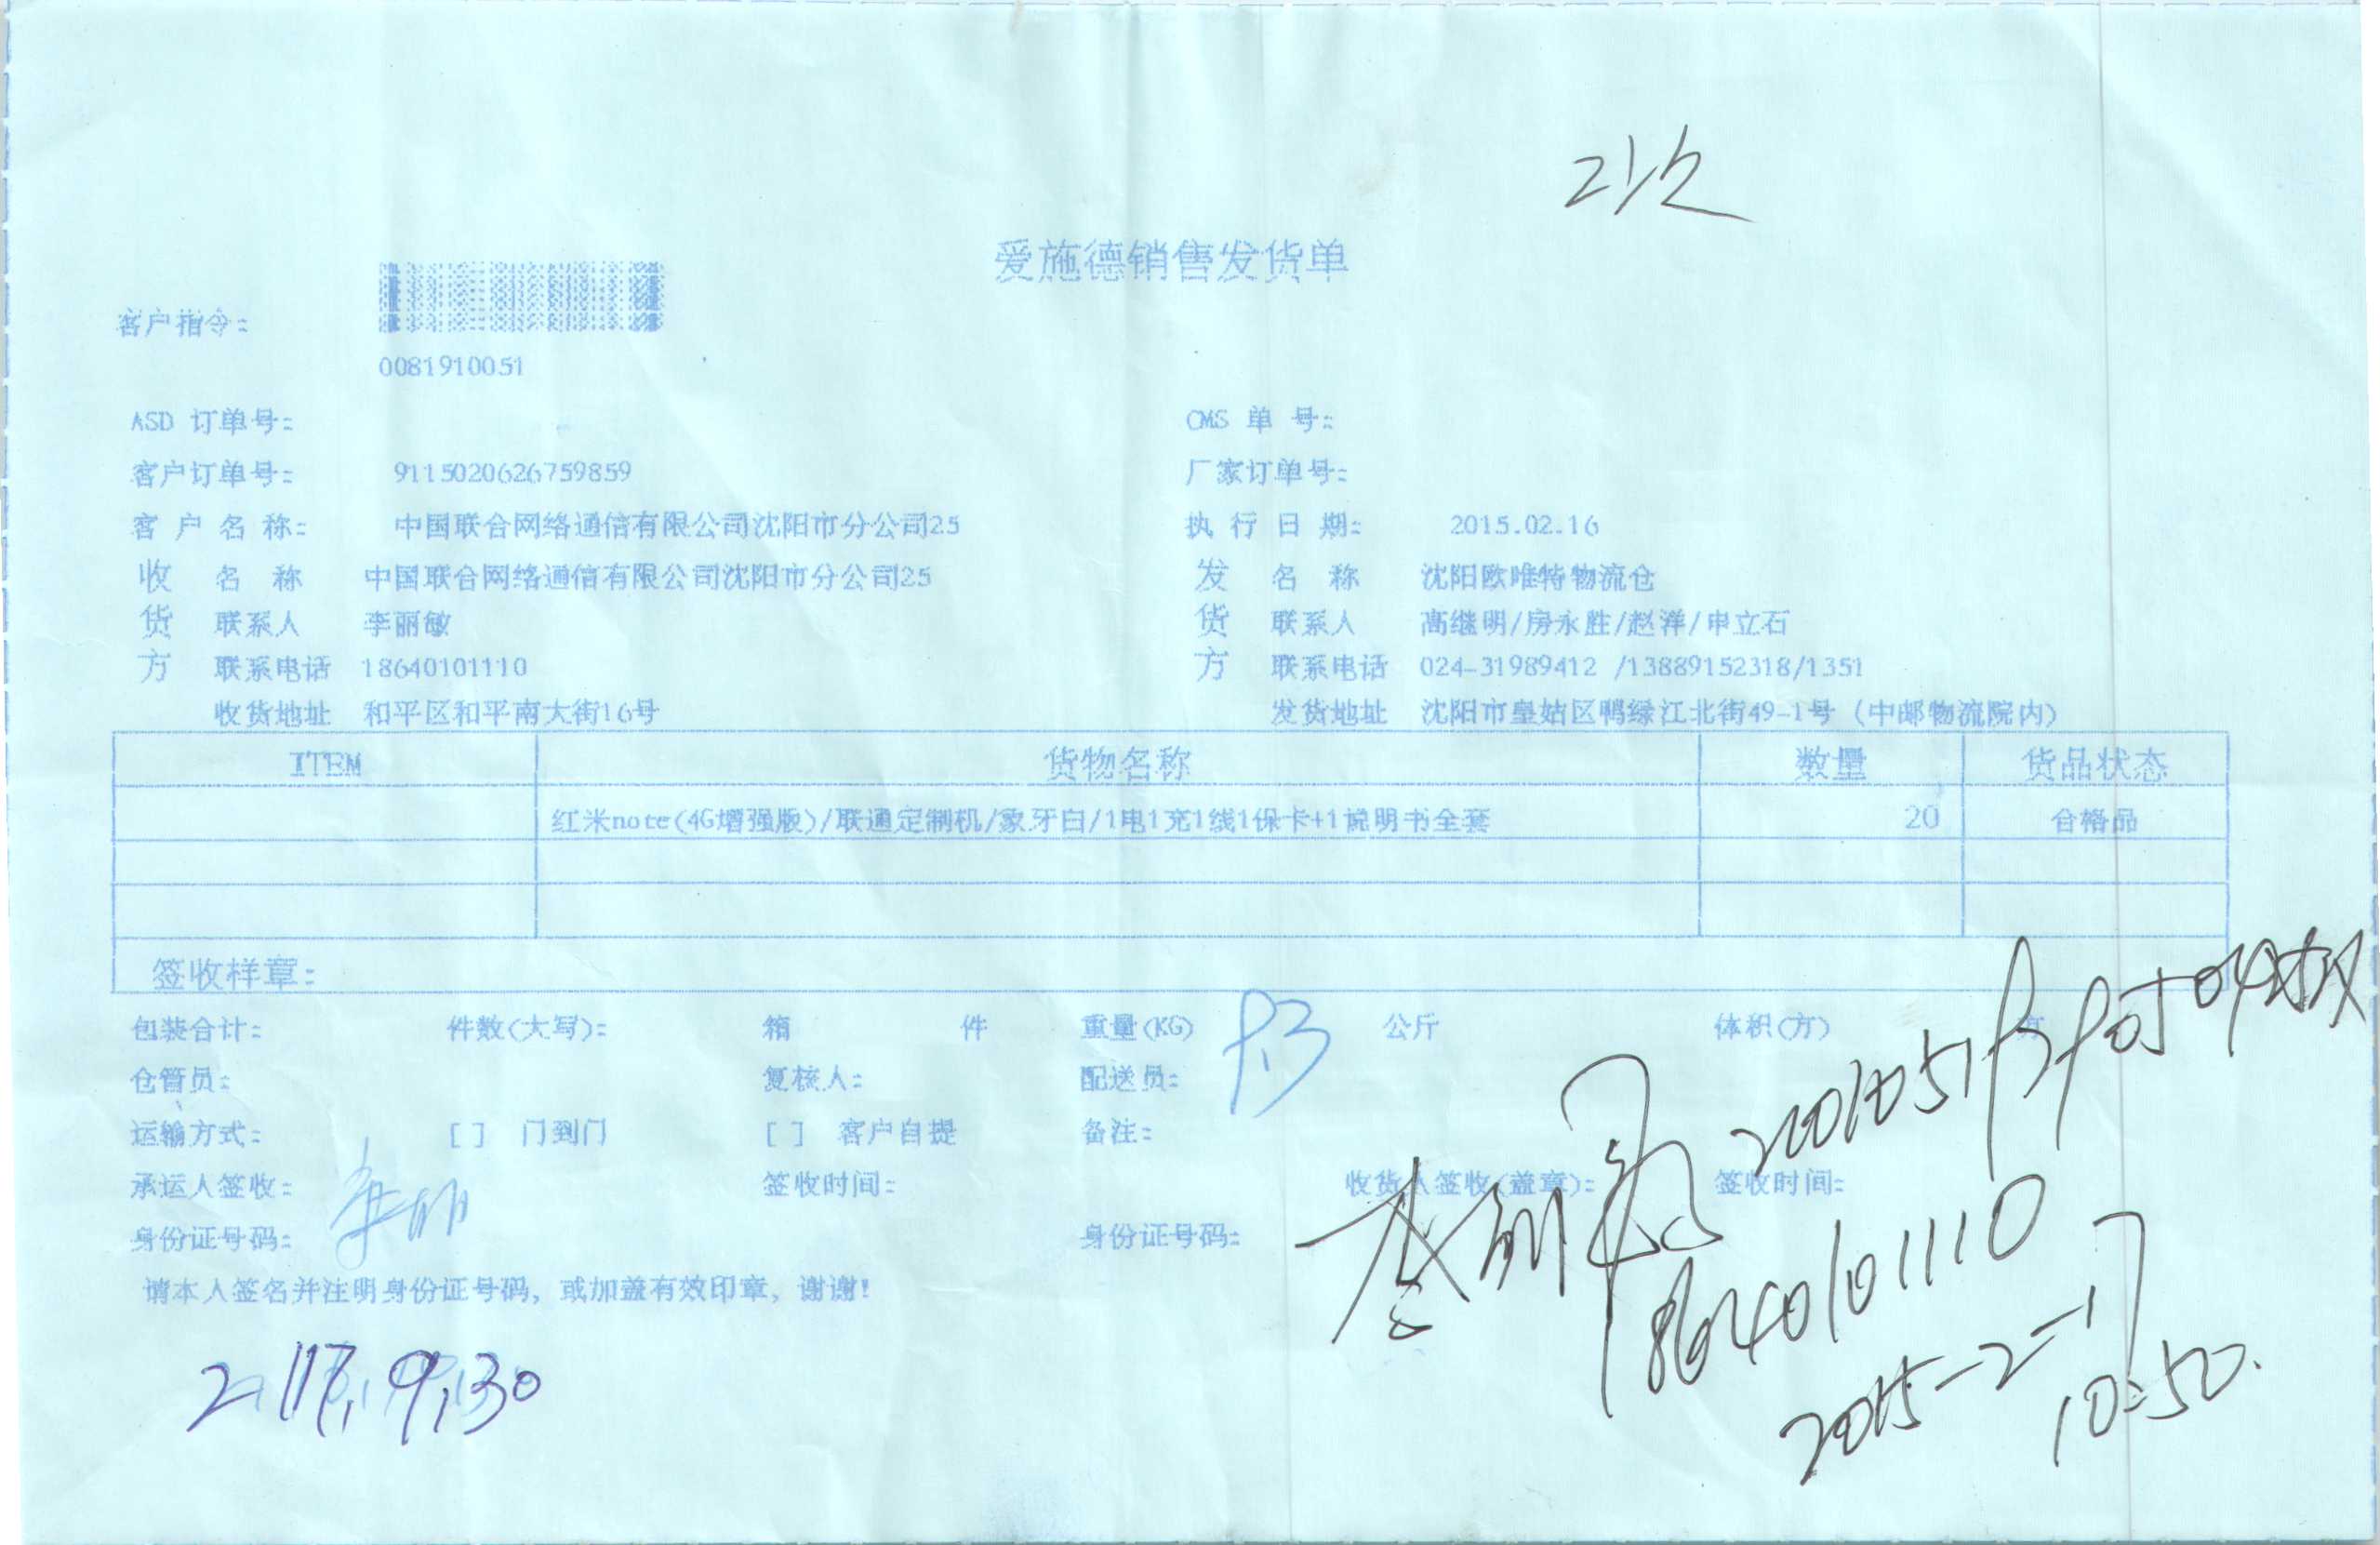 21次
爱施德销售发货单
客户指令:
0081910051
ASD 订单号: CMS 单 号:
客户订单号: 9115020626759859 厂家订单号:
客 户 名 称: 中国联合网络通信有限公司沈阳市分公司25 执 行 日 期: 2015.02.16
收 名 称 中国联合网络通信有限公司沈阳市分公司25 发 名 称 沈阳欧唯特物流仓
货 联系人 李丽敏 货 联系人 高继明/房永胜/赵洋/申立石
方 联系电话 18640101110 方 联系电话 024-31989412 /13889152318/1351
收货地址 和平区和平南大街16号 发货地址 沈阳市皇姑区鸭绿江北街49-1号 (中邮物流院内)
ITEM 货物名称 数量 货品状态
红米note(4G增强版)/联通定制机/象牙白/1电1充1线1保卡+1说明书全套 20 合格品
签收样章:
包装合计: 件数(大写): 箱 件 重量(KG) 公斤 体积(方) 方
仓管员: 复核人: 配送员:
运输方式: [ ] 门到门 [ ] 客户自提 备注:
承运人签收: 签收时间: 收货人签收(盖章): 签收时间:
身份证号码: 身份证号码:
李丽敏
18640101110
请本人签名并注明身份证号码, 或加盖有效印章, 谢谢!
2.17, 9,30
2015-2-17
10:50.